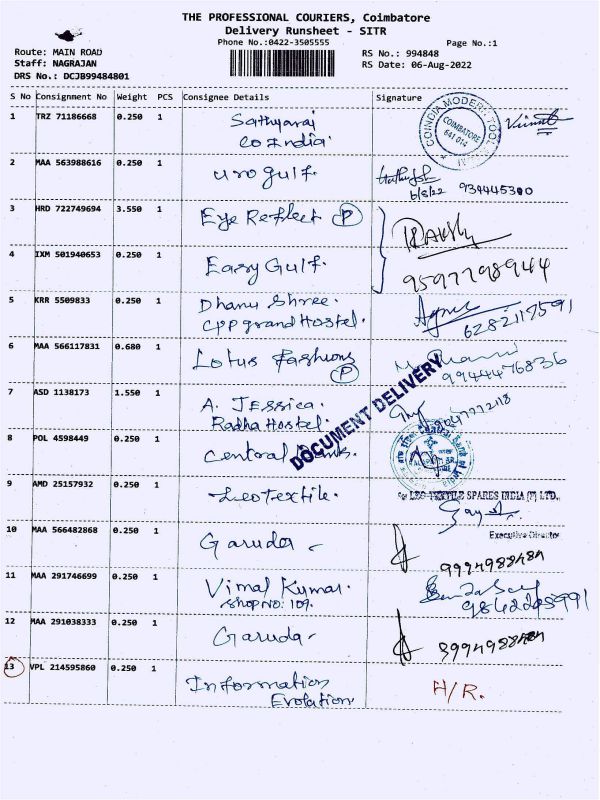 THE PROFESSIONAL COURIERS, Coimbatore
Delivery Runsheet - SITR
Phone No.:0422-3505555
Page No.:1
Route: MAIN ROAD
Staff: NAGRAJAN
DRS No.: DCJB99484801
RS No.: 994848
RS Date: 06-Aug-2022
S No Consignment No Weight PCS Consignee Details Signature
1 TRZ 71186668 0.250 1 Sathyaraj
Co India
COINDIA MODERN TOOL
COIMBATORE
641 014
2 MAA 563988616 0.250 1 uro gulf.
6/8/22 934445300
3 HRD 722749694 3.550 1 Eye Reflect P
4 IXM 501940653 0.250 1 Easy Gulf.
9597798944
5 KRR 5509833 0.250 1 Dhanu Shree.
CPP grand Hostel.
6282117591
6 MAA 566117831 0.680 1 Lotus Fashions
P
9944476836
DOCUMENT DELIVERY
7 ASD 1138173 1.550 1 A. JEssica.
Radha Hostel.
8 POL 4598449 0.250 1 Central Bank.
9 AMD 25157932 0.250 1 Leo Textile.
For LEO TEXTILE SPARES INDIA (P) LTD.,
Executive Director
10 MAA 566482868 0.250 1 Garuda
9994988484
11 MAA 291746699 0.250 1 Vimal Kumar.
Shop No: 109.
9842285991
12 MAA 291038333 0.250 1 Garuda
9994988484
13 VPL 214595860 0.250 1 Information
Evolation
H/R.